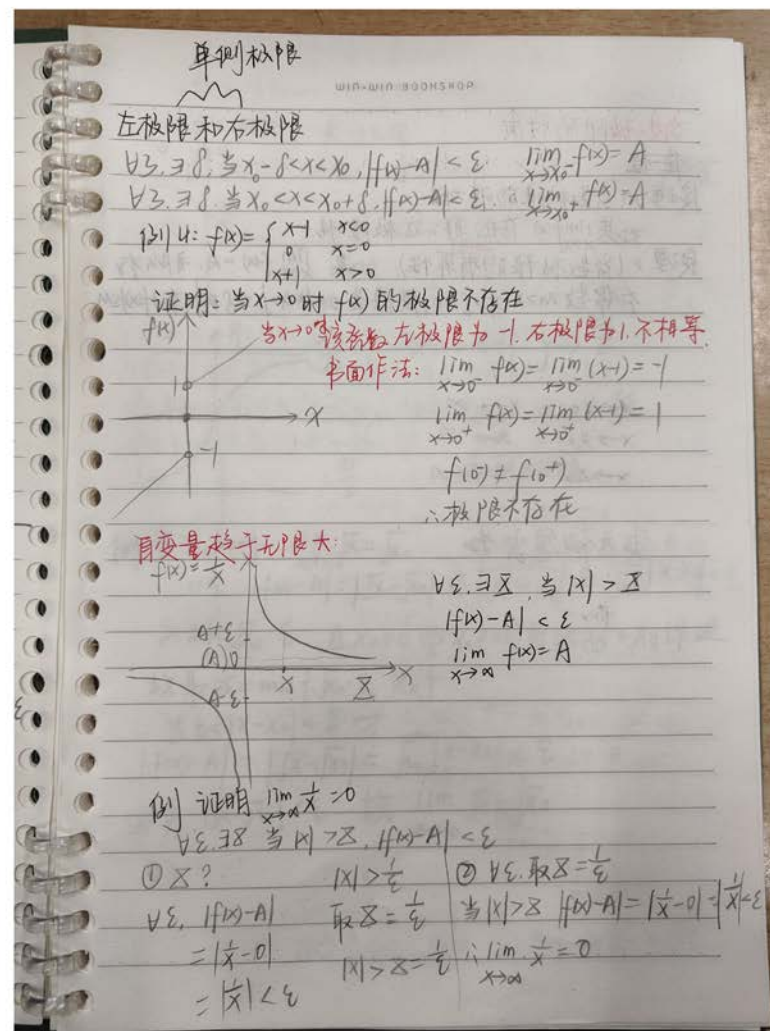 单侧极限
WIN-WIN BOOKSHOP
左极限和右极限
∀ε.∃δ.当x₀-δ<x<x₀,|f(x)-A|<ε. lim x→x₀⁻ f(x)=A
∀ε.∃δ.当x₀<x<x₀+δ,|f(x)-A|<ε. lim x→x₀⁺ f(x)=A
例4: f(x)= { x-1 x<0
0 x=0
x+1 x>0
证明:当x→0时f(x)的极限不存在
f(x)
当x→0时该函数左极限为-1.右极限为1.不相等.
书面作法: lim x→0⁻ f(x)=lim x→0⁻ (x-1)=-1
1
x
lim x→0⁺ f(x)=lim x→0⁺ (x-1)=1
-1
f(0⁻)≠f(0⁺)
∴极限不存在
自变量趋于无限大:
f(x)=1/x
∀ε.∃X.当|x|>X
|f(x)-A|<ε
lim x→∞ f(x)=A
A+ε
(A)0
x X x
A-ε
例 证明 lim x→∞ 1/x=0
∀ε.∃X 当|x|>X,|f(x)-A|<ε
① X? |x|>1/ε ② ∀ε.取X=1/ε
∀ε, |f(x)-A| 取X=1/ε 当|x|>X |f(x)-A|=|1/x-0|=|1/x|<ε
=|1/x-0| |x|>X=1/ε ∴lim x→∞ 1/x=0
=|1/x|<ε